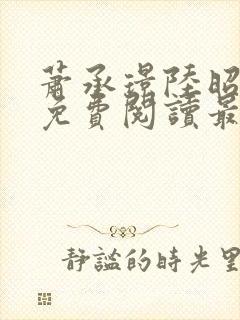 蕭承璟陸昭
免費閱讀最
靜謐的時光里